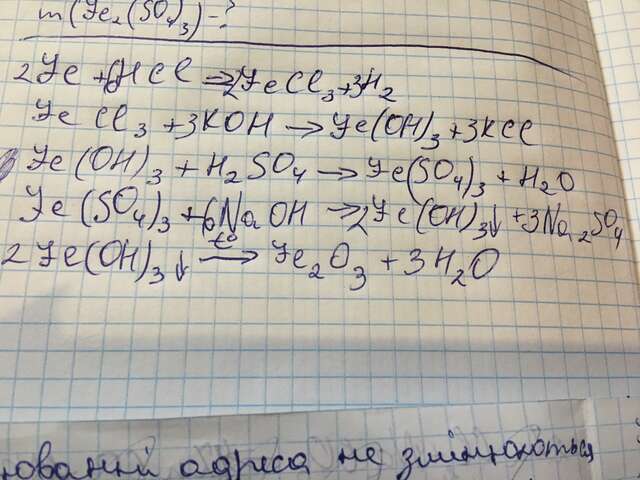 m(Fe₂(SO₄)₃)-?
2Fe + 6HCl → 2FeCl₃ + 3H₂
FeCl₃ + 3KOH → Fe(OH)₃ + 3KCl
Fe(OH)₃ + H₂SO₄ → Fe(SO₄)₃ + H₂O
Fe(SO₄)₃ + 6NaOH → 2Fe(OH)₃↓ + 3Na₂SO₄
2Fe(OH)₃↓ →t° Fe₂O₃ + 3H₂O
адреса не змінюються